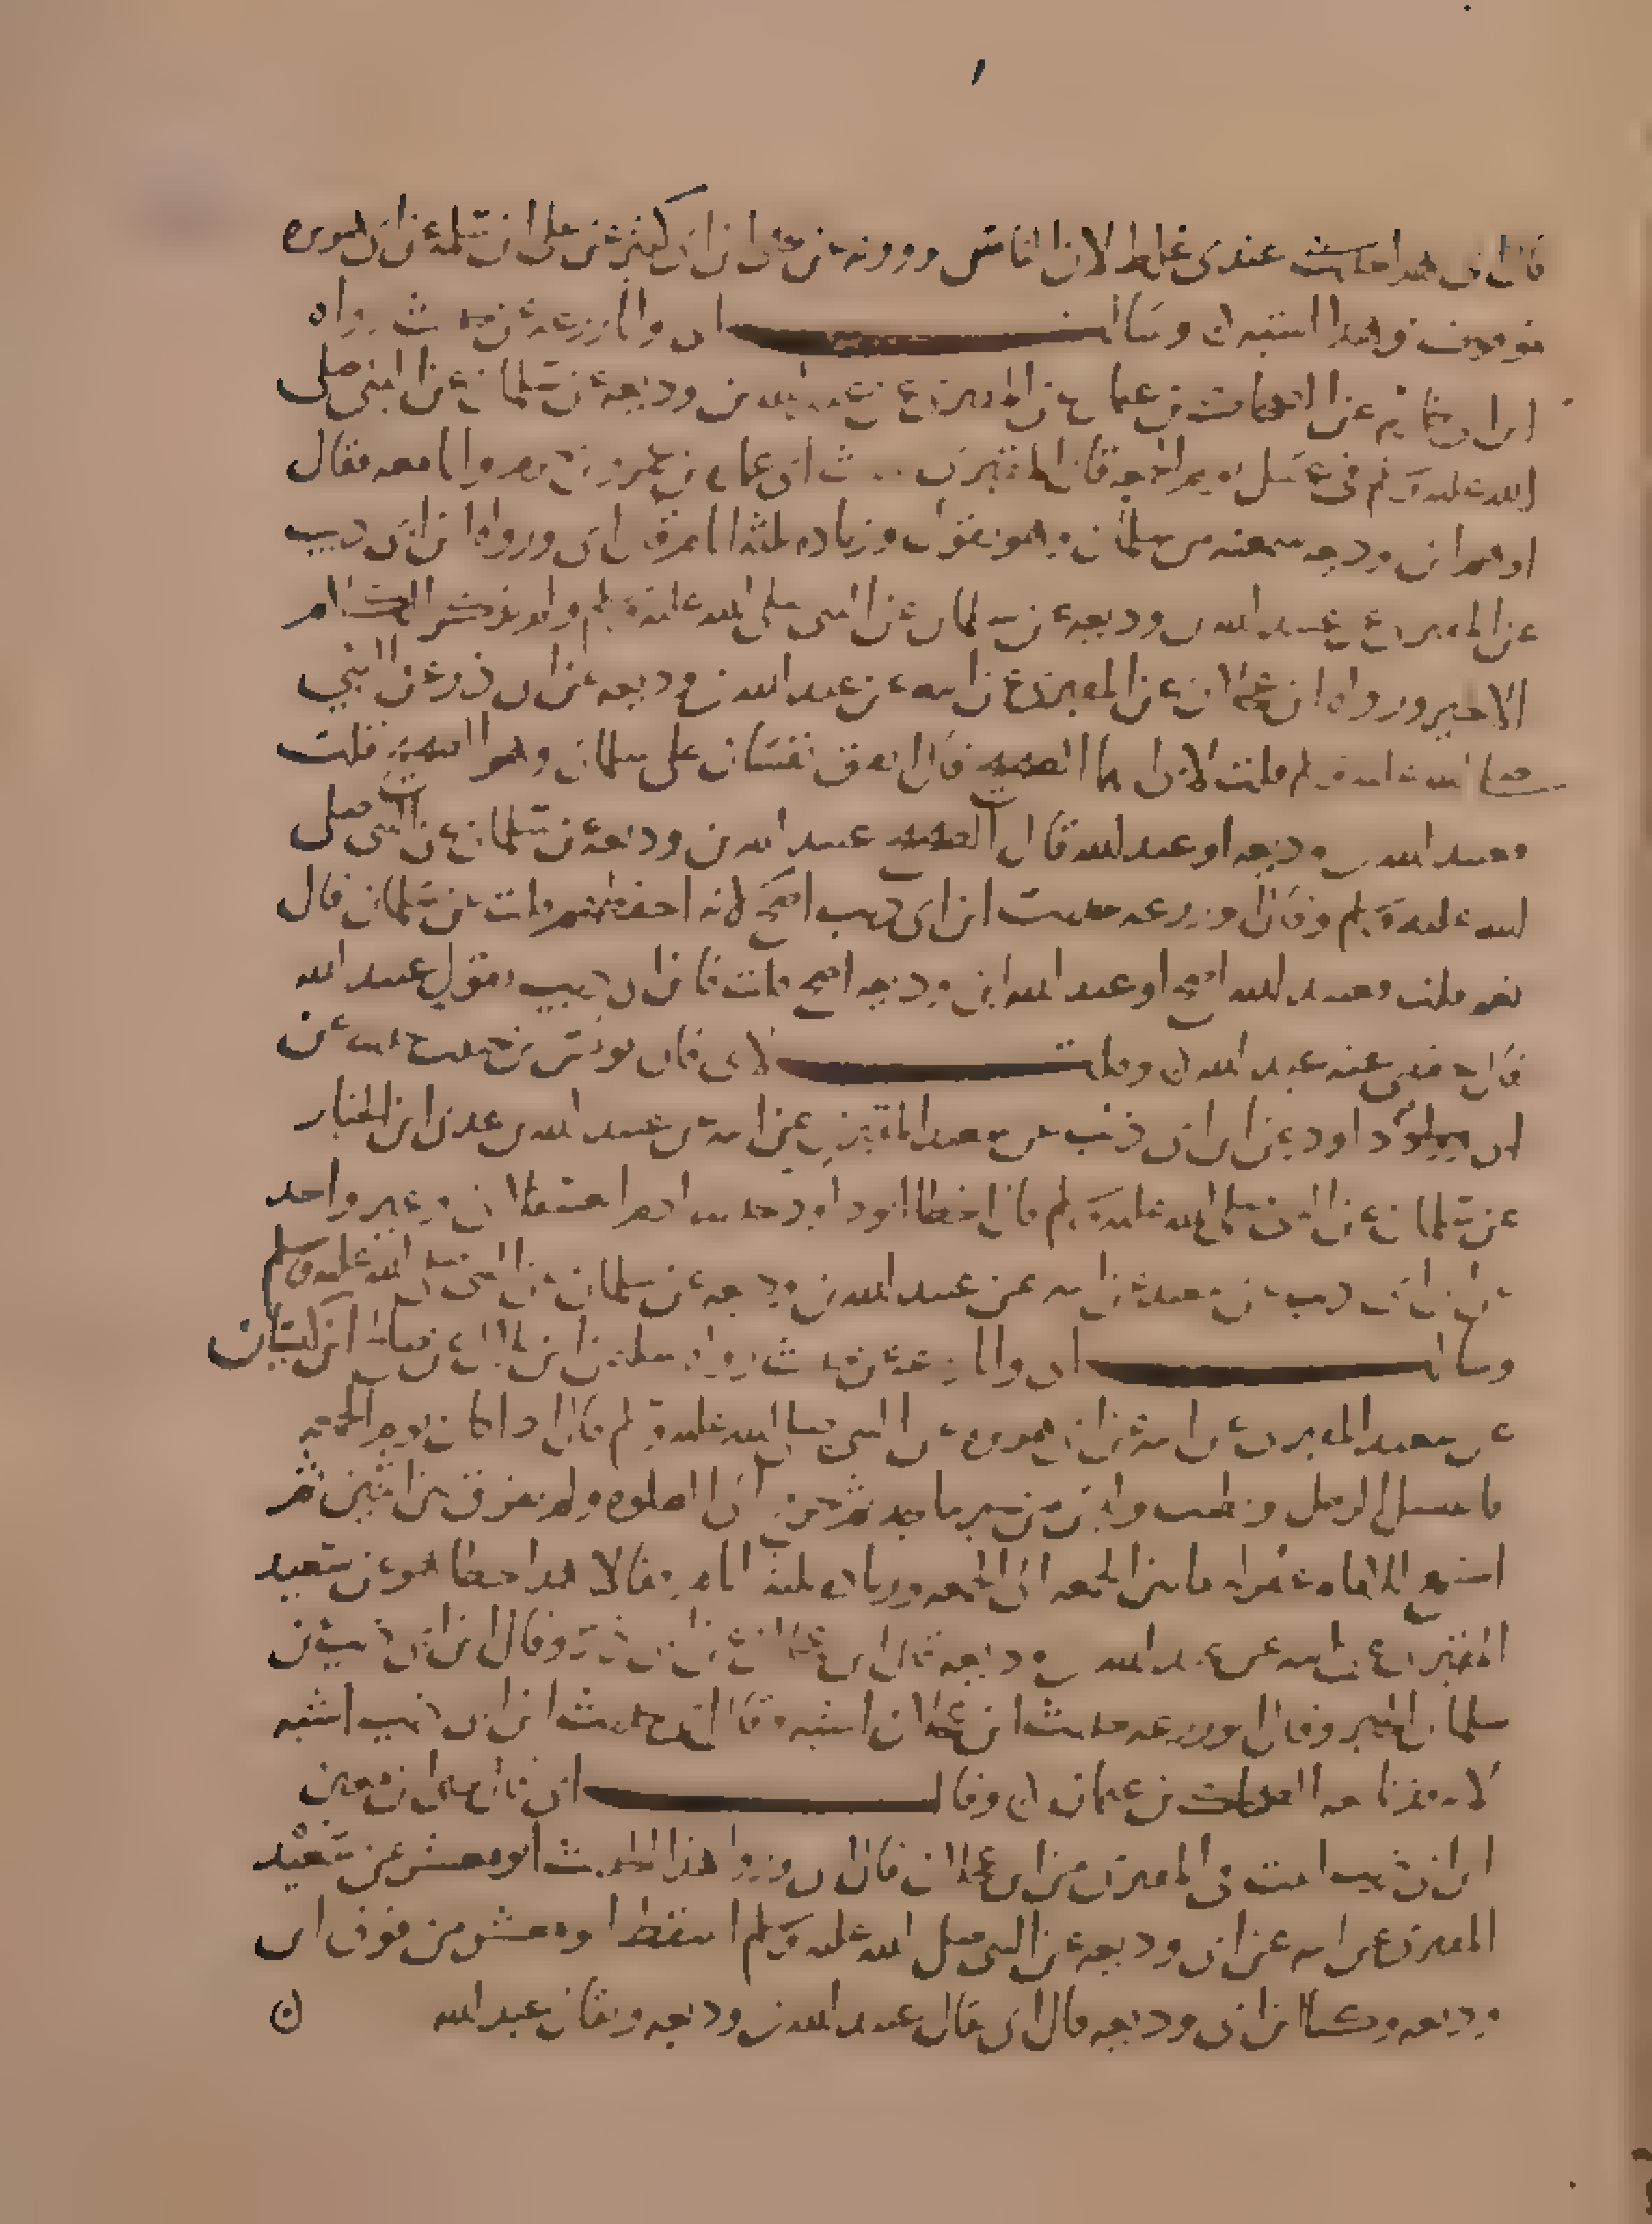 قال ابي هذا حديث عندي غلط لان الناس يروونه عن يحيى بن ابي كثير عن ابي سلمة عن ابي هريرة
موقوف وهذا اشبه ن وسالت ابي وابا زرعة عن حديث رواه
ابن عن الضحاك بن عثمان عن المقبري عن عبيد الله بن وديعة عن سلمان عن النبي صلى
الله عليه وسلم في غسل يوم الجمعة قال المقبري حدث ابي عمارة بن عمرو بن حزم وانا معه فقال
اوهم ابن وديعة سمعته من سلمان وهو يقول وزيادة ثلاثة ايام قال ابي ورواه ابن ابي ذيب
عن المقبري عن عبيد الله بن وديعة عن سلمان عن النبي صلى الله عليه وسلم ولم يذكر الكلام
الاخير ورواه ابن عجلان عن المقبري عن ابيه عن عبد الله بن وديعة عن ابي ذر عن النبي
صلى الله عليه وسلم قلت لابي ايها الصحيح قال اتفق نفسان على سلمان وهو الصحيح قلت
فعبيد الله بن وديعة او عبد الله قال الصحيح عبيد الله بن وديعة عن سلمان عن النبي صلى
الله عليه وسلم وقال ابو زرعة حديث ابن ابي ذيب اصح لانه احفظهم قلت عن سلمان قال
نعم قلت فعبيد الله اصح او عبد الله ابن وديعة اصح قلت فابن ابي ذيب يقول عبيد الله
قال عندي عنه عبد الله ن وقلت لابي فان يونس بن حبيب حدثنا عن
ابي داود عن ابن ابي ذيب عن سعيد المقبري عن ابيه عن عبيد الله بن عدي ابن الخيار
عن سلمان عن النبي صلى الله عليه وسلم قال اخطا ابو داود حدثنا ادم العسقلاني وغير واحد
عن ابن ابي ذيب عن سعيد عن ابيه عن عبيد الله بن وديعة عن سلمان عن النبي صلى الله عليه وسلم
وسالت ابي وابا زرعة عن حديث رواه سليمن ابن بلال عن صالح ابن كيسان
عن سعيد المقبري عن ابيه عن ابي هريرة عن النبي صلى الله عليه وسلم قال اذا كان يوم الجمعة
فاغتسل الرجل وتطيب ولبس من خير ما يجد ثم خرج الى الصلوة ولم يفرق بين اثنين ثم
استمع الامام غفر له ما بين الجمعة الى الجمعة وزيادة ثلثة ايام فقالا هذا خطا هو عن سعيد
المقبري عن ابيه عن عبد الله بن وديعة قال ابن عجلان عن ابي ذر وقال ابن ابي ذيب عن
سلمان الخير وقال ابو زرعة حديث ابن عجلان اشبه وقال ابي حديث ابن ابي ذيب اشبه
لانه قد تابعه الضحاك بن عثمان ن وقال ابي قال يحيى بن معين
ابن ابي ذيب اثبت في المقبري من ابن عجلان قال ابي وروى هذا الحديث ابو معشر عن سعيد
المقبري عن ابيه عن ابن وديعة عن النبي صلى الله عليه وسلم اسقط ابو معشر من فوق ابن
وديعة وكنا عن ابن وديعة قال ابي يقال عبيد الله بن وديعة ويقال عبد الله ن